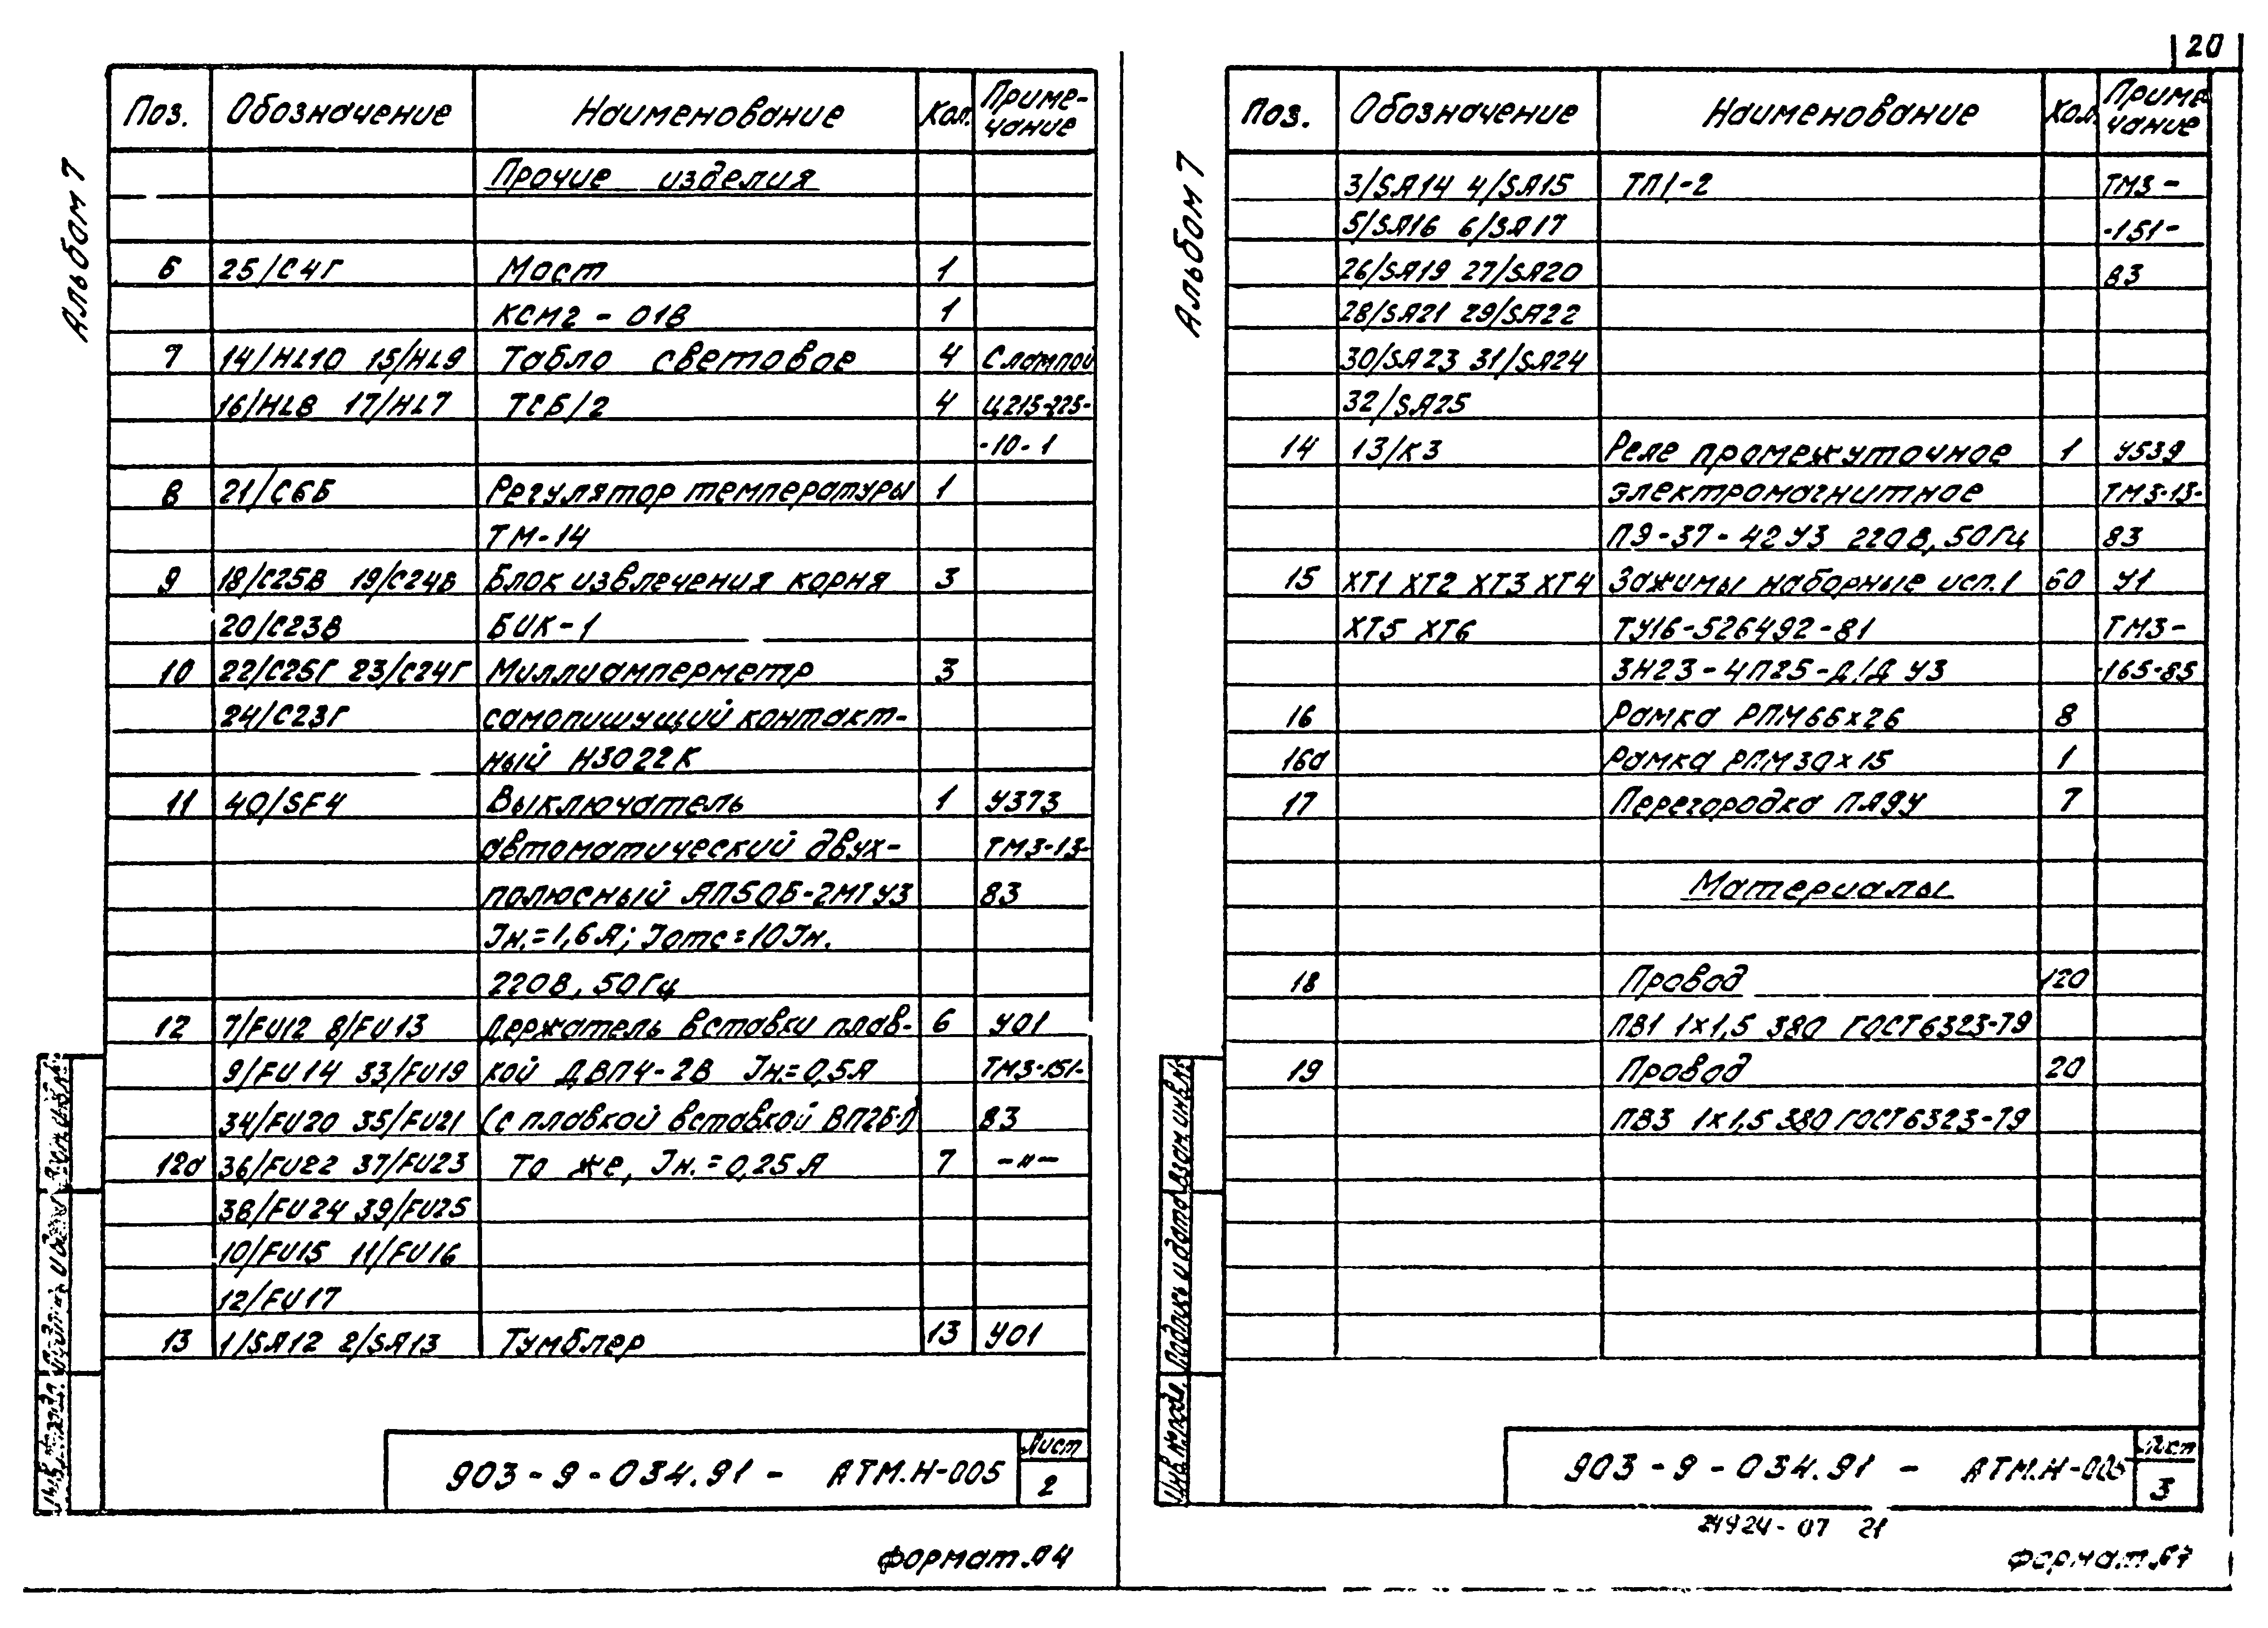 20
Альбом 7
Поз. Обозначение Наименование Кол. Приме-
чание
Прочие изделия
6 25/С4Г Мост 1
КСМ2-018 1
7 14/HL10 15/HL9 Табло световое 4 С лампой
16/HL8 17/HL7 ТСБ/2 4 Ц215-225-
-10-1
8 21/С6Б Регулятор температуры 1
ТМ-14
9 18/С25В 19/С24В Блок извлечения корня 3
20/С23В БИК-1
10 22/С25Г 23/С24Г Миллиамперметр 3
24/С23Г самопишущий контакт-
ный Н3022К
11 40/SF4 Выключатель 1 У373
автоматический двух- ТМ3-13-
полюсный АП50Б-2МТУ3 83
Iн.=1,6А; Iотс=10Iн.
220В, 50Гц
12 7/FU12 8/FU13 Держатель вставки плав- 6 У01
9/FU14 33/FU19 кой ДВП4-2В Iн.=0,5А ТМ3-151-
34/FU20 35/FU21 (с плавкой вставкой ВП2Б-1) 83
12а 36/FU22 37/FU23 То же, Iн.=0,25А 7 -"-
38/FU24 39/FU25
10/FU15 11/FU16
12/FU17
13 1/SA12 2/SA13 Тумблер 13 У01
903-9-034.91 - АТМ.Н-005 Лист
2
Формат А4
Альбом 7
Поз. Обозначение Наименование Кол. Приме-
чание
3/SA14 4/SA15 ТП1-2 ТМ3-
5/SA16 6/SA17 -151-
26/SA19 27/SA20 83
28/SA21 29/SA22
30/SA23 31/SA24
32/SA25
14 13/К3 Реле промежуточное 1 У539
электромагнитное ТМ3-13-
ПЭ-37-42У3 220В, 50Гц 83
15 ХТ1 ХТ2 ХТ3 ХТ4 Зажимы наборные исп.1 60 У1
ХТ5 ХТ6 ТУ16-526492-81 ТМ3-
ЗН23-4П25-Д/Д У3 -165-85
16 Рамка РПМ66х26 8
16а Рамка РПМ30х15 1
17 Перегородка ПА9У 7
Материалы
18 Провод 120
ПВ1 1х1,5 380 ГОСТ6323-79
19 Провод 20
ПВ3 1х1,5 380 ГОСТ6323-79
Инв.№ подл. Подпись и дата Взам.инв.№
903-9-034.91 - АТМ.Н-005 Лист
3
24924-07 21
Формат